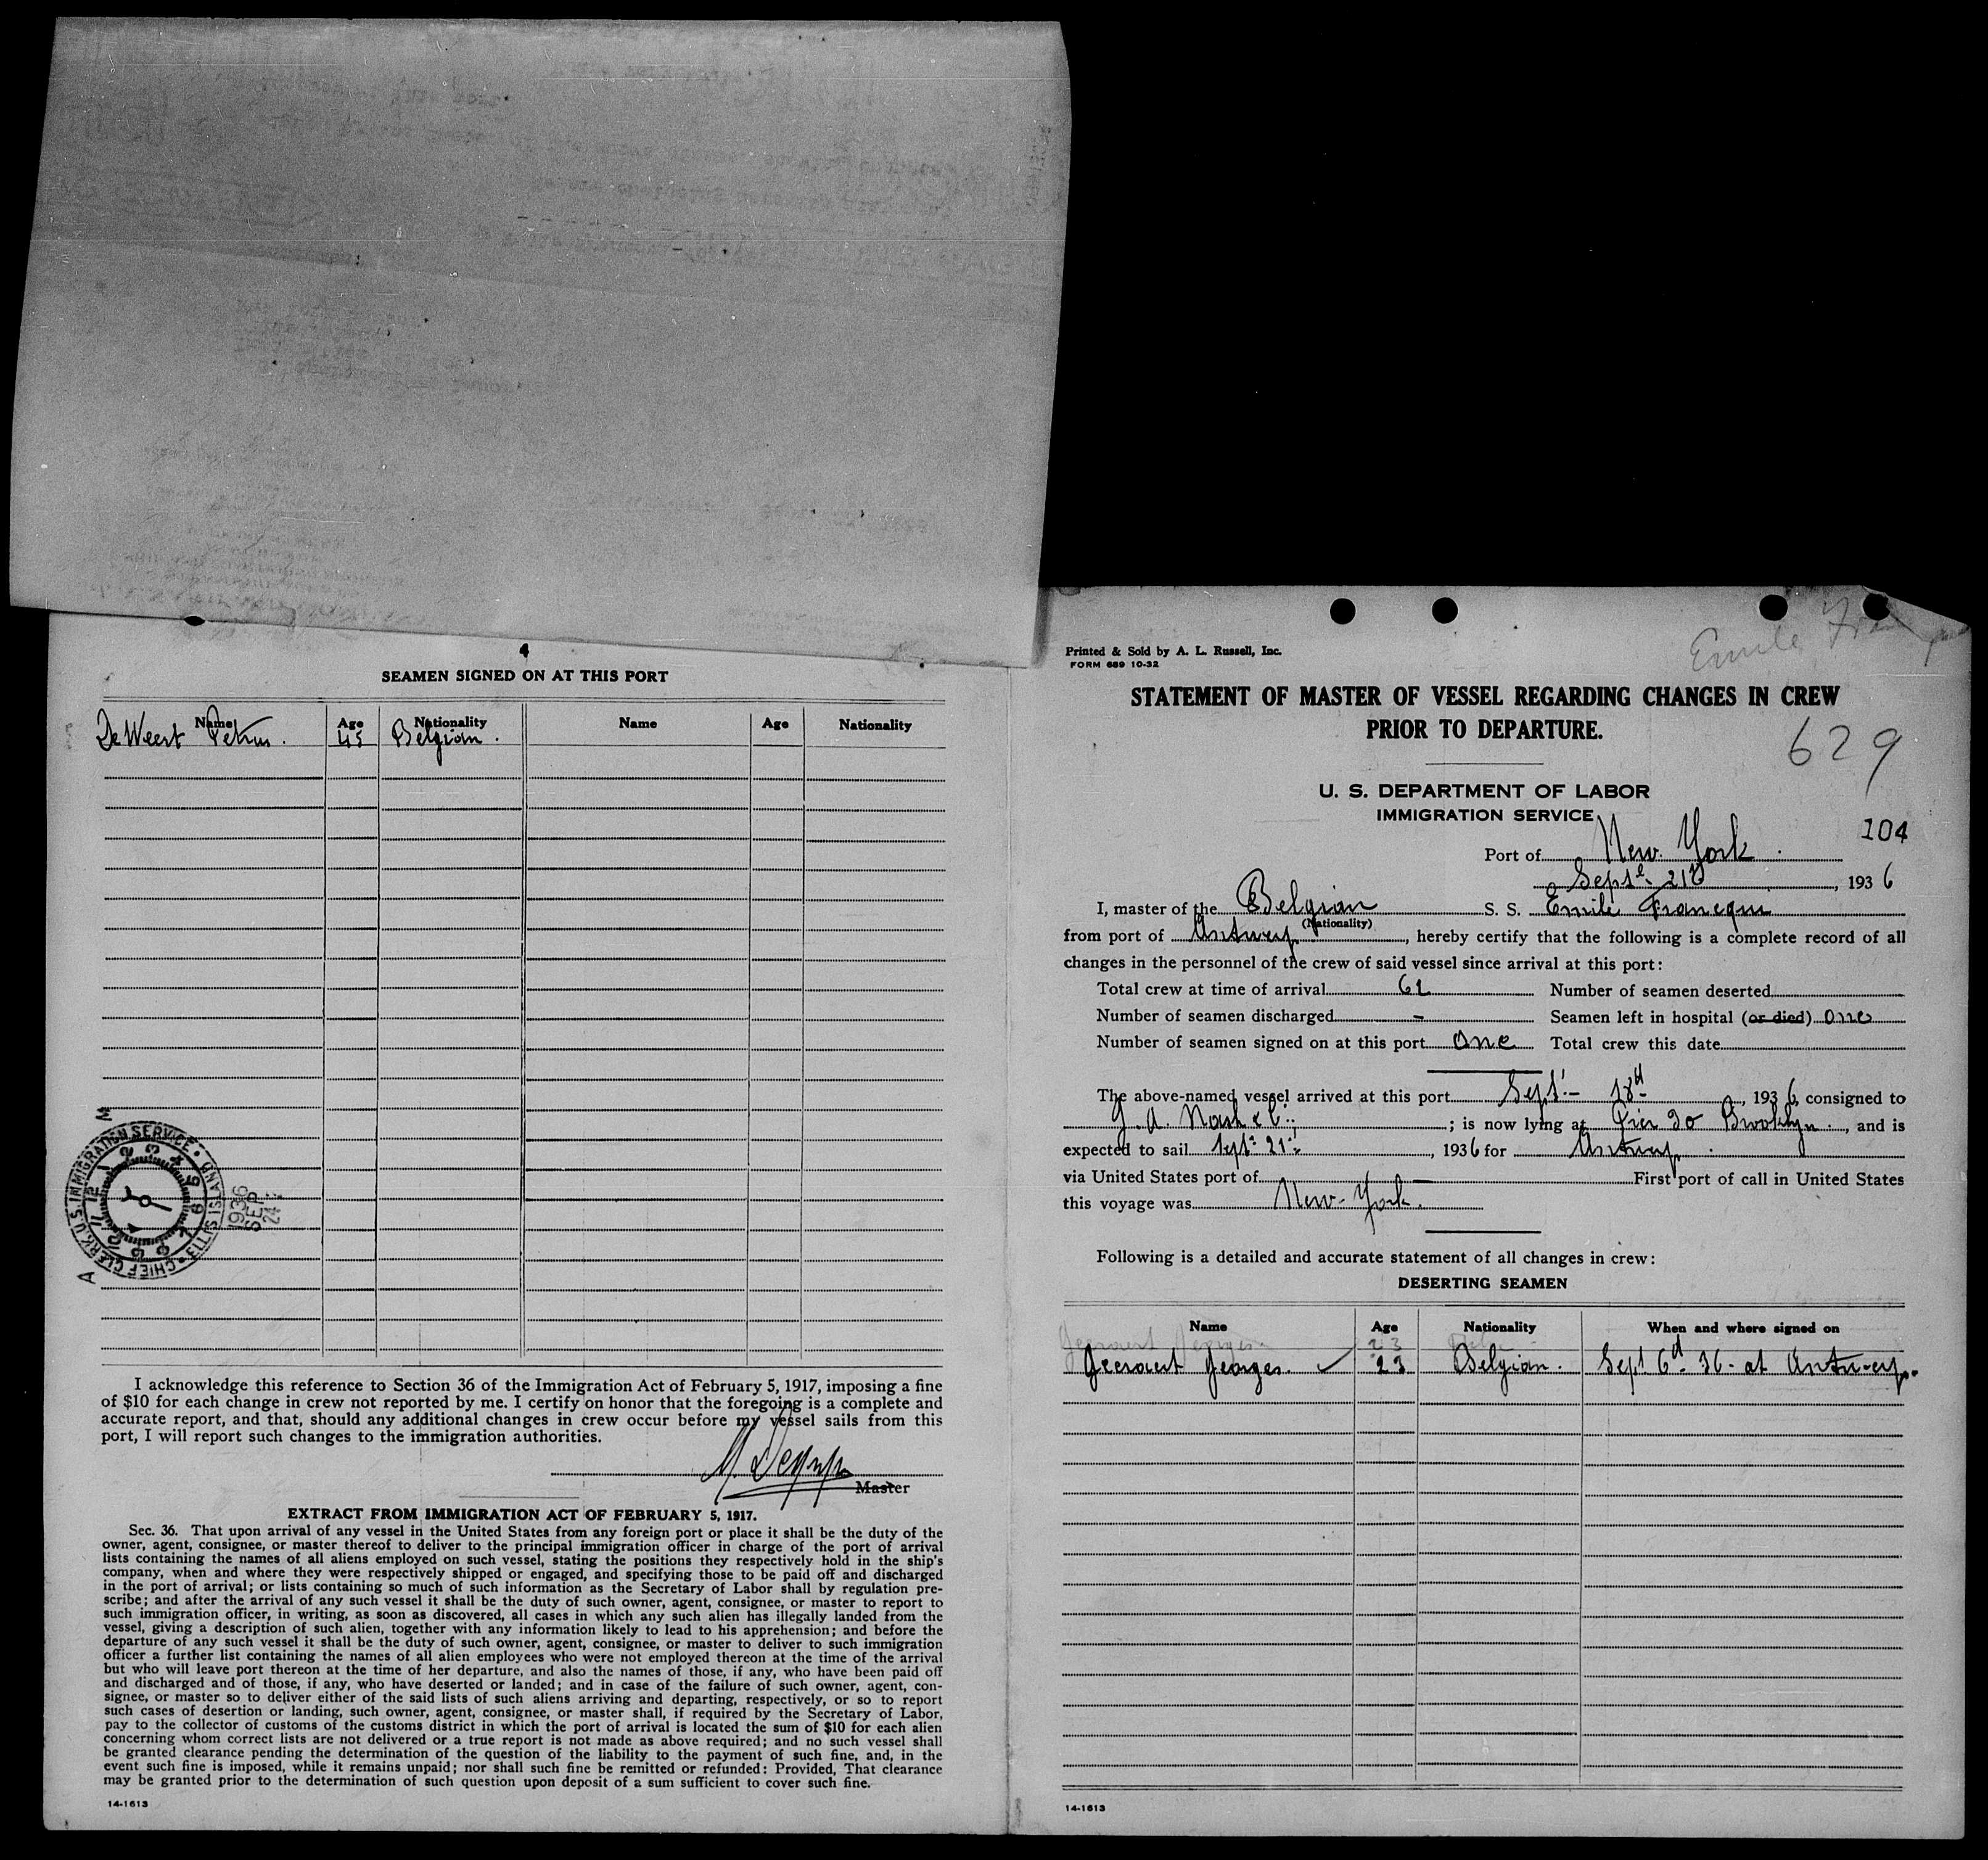 4
SEAMEN SIGNED ON AT THIS PORT
Name Age Nationality Name Age Nationality
De Weert Petrus. 45 Belgian.
CHIEF CLERK U.S. IMMIGRATION SERVICE • ELLIS ISLAND
1936
SEP
24
A M
I acknowledge this reference to Section 36 of the Immigration Act of February 5, 1917, imposing a fine
of $10 for each change in crew not reported by me. I certify on honor that the foregoing is a complete and
accurate report, and that, should any additional changes in crew occur before my vessel sails from this
port, I will report such changes to the immigration authorities.
Master
EXTRACT FROM IMMIGRATION ACT OF FEBRUARY 5, 1917.
Sec. 36. That upon arrival of any vessel in the United States from any foreign port or place it shall be the duty of the
owner, agent, consignee, or master thereof to deliver to the principal immigration officer in charge of the port of arrival
lists containing the names of all aliens employed on such vessel, stating the positions they respectively hold in the ship's
company, when and where they were respectively shipped or engaged, and specifying those to be paid off and discharged
in the port of arrival; or lists containing so much of such information as the Secretary of Labor shall by regulation pre-
scribe; and after the arrival of any such vessel it shall be the duty of such owner, agent, consignee, or master to report to
such immigration officer, in writing, as soon as discovered, all cases in which any such alien has illegally landed from the
vessel, giving a description of such alien, together with any information likely to lead to his apprehension; and before the
departure of any such vessel it shall be the duty of such owner, agent, consignee, or master to deliver to such immigration
officer a further list containing the names of all alien employees who were not employed thereon at the time of the arrival
but who will leave port thereon at the time of her departure, and also the names of those, if any, who have been paid off
and discharged and of those, if any, who have deserted or landed; and in case of the failure of such owner, agent, con-
signee, or master so to deliver either of the said lists of such aliens arriving and departing, respectively, or so to report
such cases of desertion or landing, such owner, agent, consignee, or master shall, if required by the Secretary of Labor,
pay to the collector of customs of the customs district in which the port of arrival is located the sum of $10 for each alien
concerning whom correct lists are not delivered or a true report is not made as above required; and no such vessel shall
be granted clearance pending the determination of the question of the liability to the payment of such fine, and, in the
event such fine is imposed, while it remains unpaid; nor shall such fine be remitted or refunded: Provided, That clearance
may be granted prior to the determination of such question upon deposit of a sum sufficient to cover such fine.
14-1613
Emile
Printed & Sold by A. L. Russell, Inc.
FORM 689 10-32
STATEMENT OF MASTER OF VESSEL REGARDING CHANGES IN CREW
PRIOR TO DEPARTURE.
629
U. S. DEPARTMENT OF LABOR
IMMIGRATION SERVICE
104
Port of New York.
Sept. 21, 1936
I, master of the Belgian S. S. Emile Francqui
(Nationality)
from port of Antwerp, hereby certify that the following is a complete record of all
changes in the personnel of the crew of said vessel since arrival at this port:
Total crew at time of arrival 61 Number of seamen deserted
Number of seamen discharged - Seamen left in hospital (or died) one
Number of seamen signed on at this port one Total crew this date
The above-named vessel arrived at this port Sept. 18, 1936, consigned to
J. A. Nash & C°; is now lying at Pier 30 Brooklyn., and is
expected to sail Sept. 21, 1936 for Antwerp.
via United States port of First port of call in United States
this voyage was New-York.
Following is a detailed and accurate statement of all changes in crew:
DESERTING SEAMEN
Name Age Nationality When and where signed on
Geeraert Georges 23
Geeraert Georges. ✓ 23 Belgian. Sept. 6 36 - at Antwerp.
14-1613